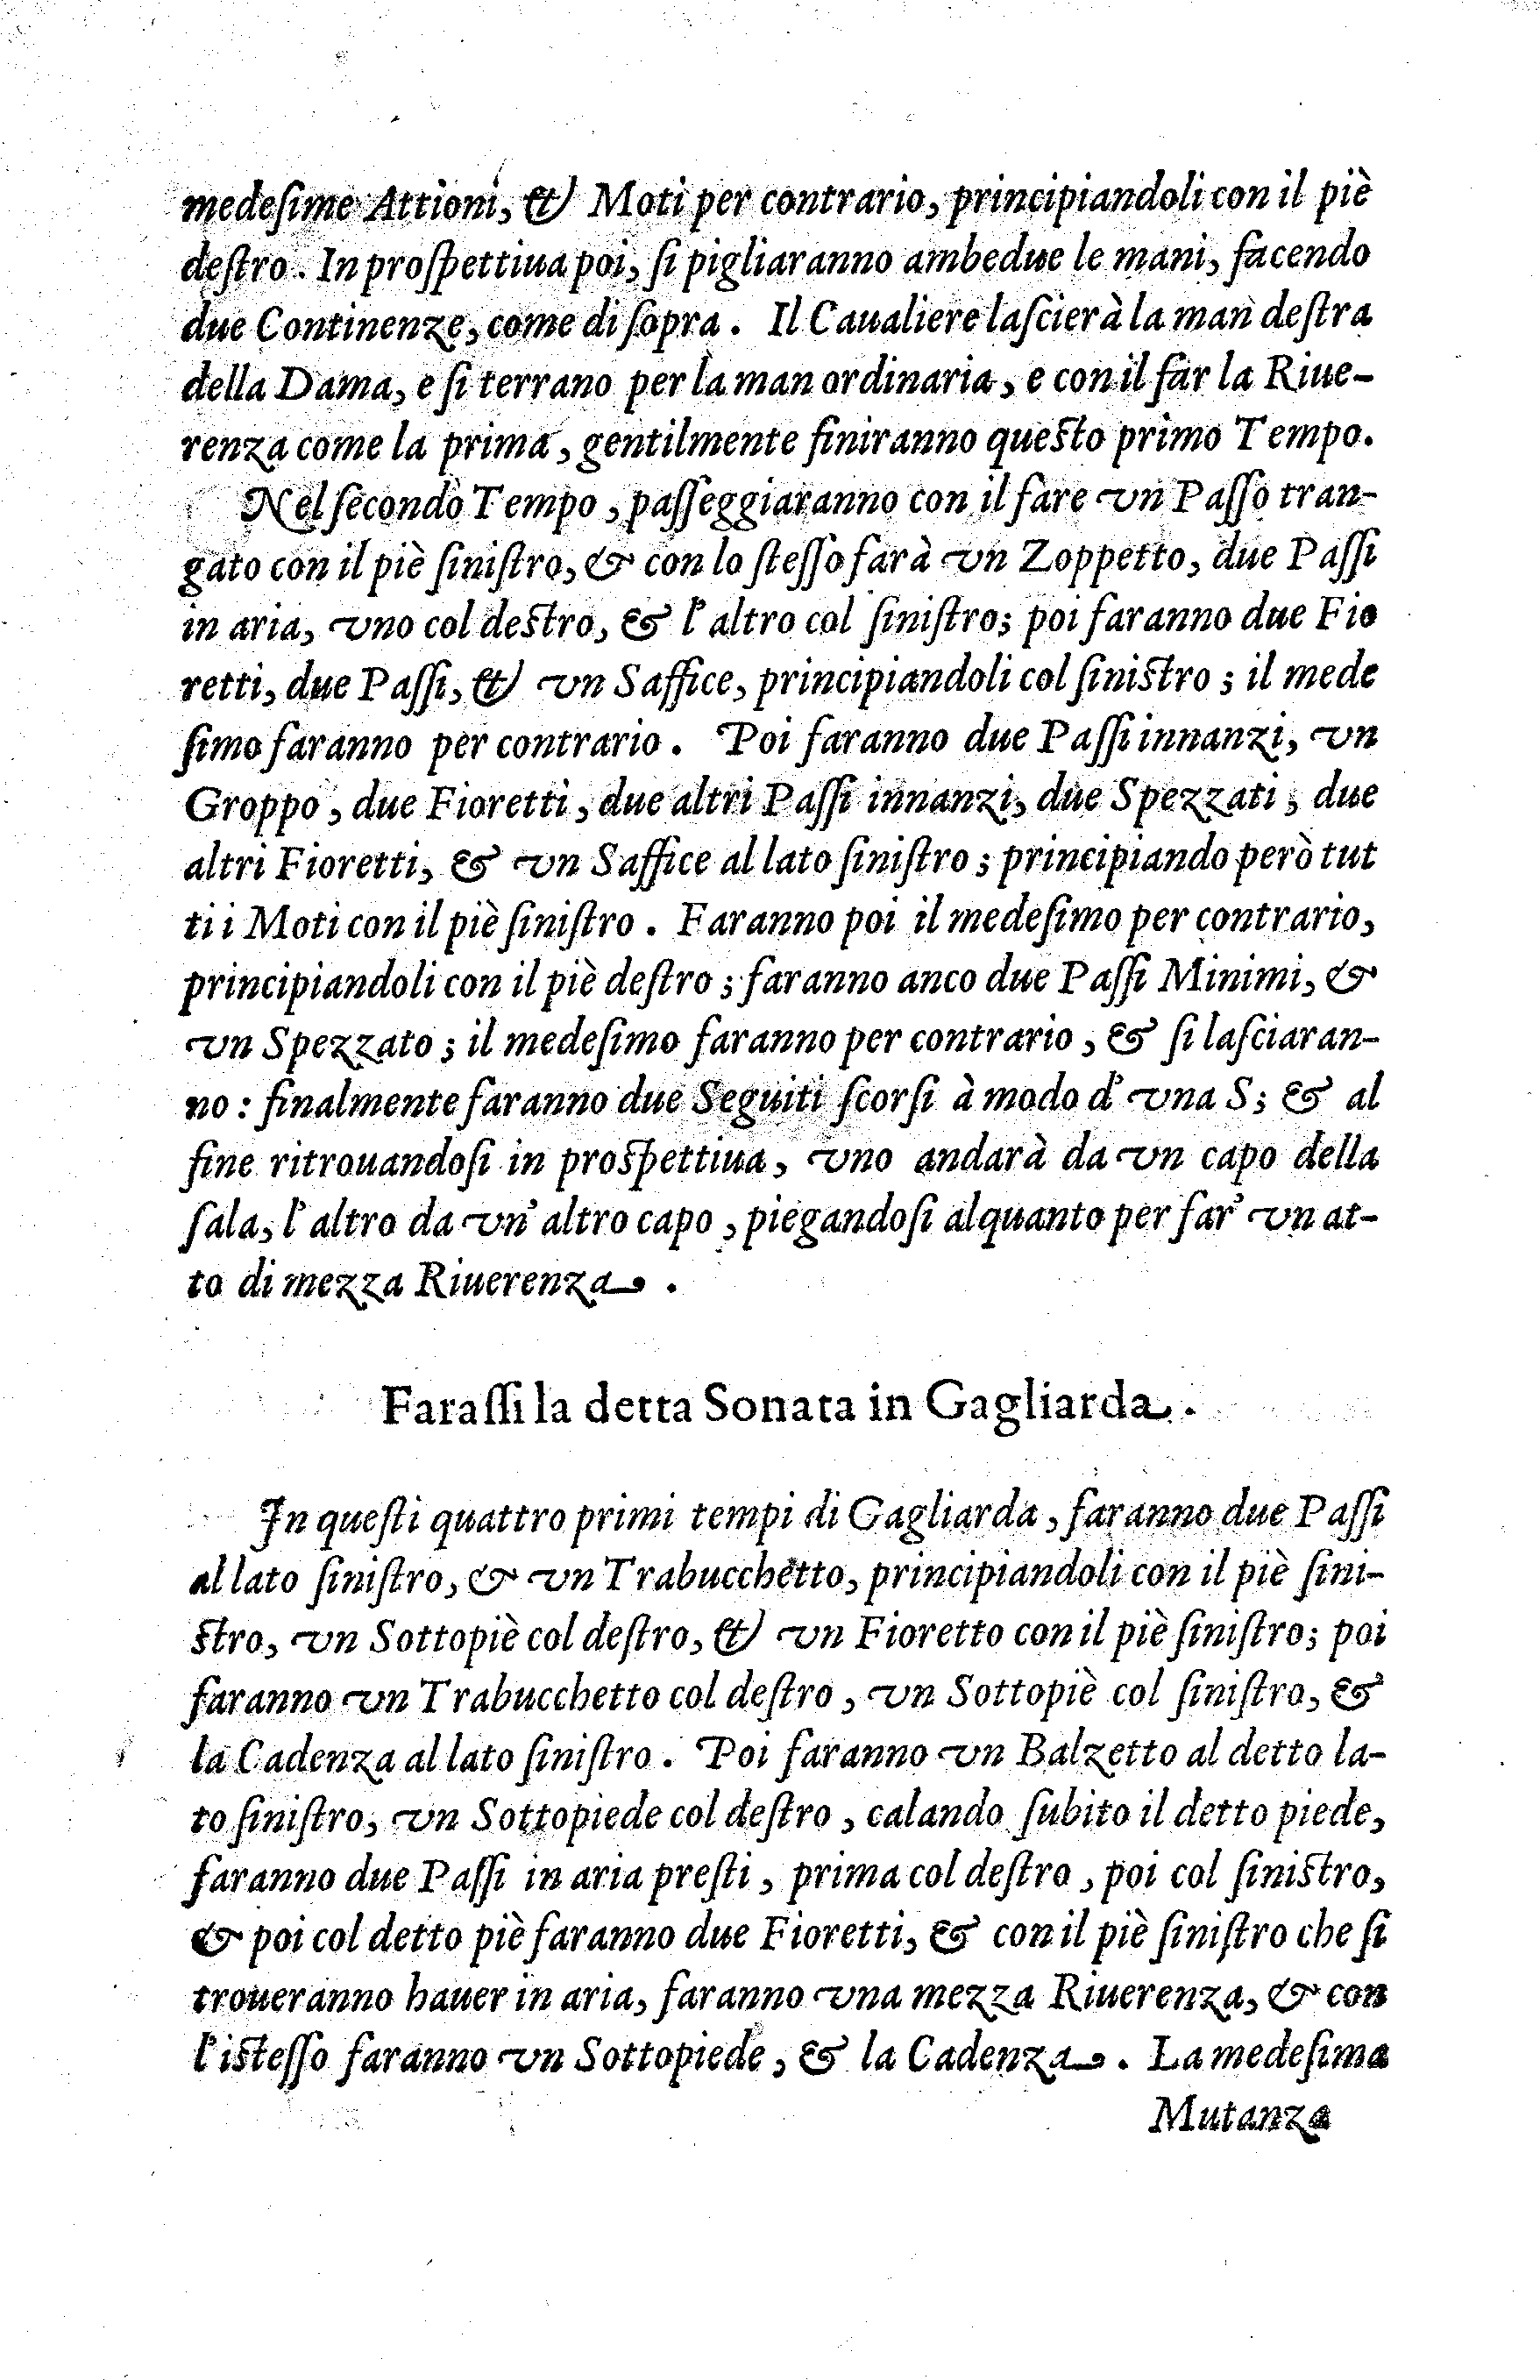 medeſime Attioni, & Moti per contrario, principiandoli con il piè
deſtro. In proſpettiua poi, ſi pigliaranno ambedue le mani, facendo
due Continenze, come di ſopra. Il Caualiere laſcierà la man deſtra
della Dama, e ſi terrano per la man ordinaria, e con il far la Riue-
renza come la prima, gentilmente finiranno queſto primo Tempo.
Nel ſecondo Tempo, paſſeggiaranno con il fare vn Paſſo tran-
gato con il piè ſiniſtro, & con lo ſteſſo farà vn Zoppetto, due Paſſi
in aria, vno col deſtro, & l'altro col ſiniſtro; poi faranno due Fio
retti, due Paſſi, & vn Saffice, principiandoli col ſiniſtro; il mede
ſimo faranno per contrario. Poi faranno due Paſſi innanzi, vn
Groppo, due Fioretti, due altri Paſſi innanzi, due Spezzati, due
altri Fioretti, & vn Saffice al lato ſiniſtro; principiando però tut
ti i Moti con il piè ſiniſtro. Faranno poi il medeſimo per contrario,
principiandoli con il piè deſtro; faranno anco due Paſſi Minimi, &
vn Spezzato; il medeſimo faranno per contrario, & ſi laſciaran-
no: finalmente faranno due Seguiti ſcorſi à modo d'vna S; & al
fine ritrouandoſi in proſpettiua, vno andarà da vn capo della
ſala, l'altro da vn'altro capo, piegandoſi alquanto per far' vn at-
to di mezza Riuerenza.
Faraſſi la detta Sonata in Gagliarda.
In queſti quattro primi tempi di Gagliarda, faranno due Paſſi
al lato ſiniſtro, & vn Trabucchetto, principiandoli con il piè ſini-
ſtro, vn Sottopiè col deſtro, & vn Fioretto con il piè ſiniſtro; poi
faranno vn Trabucchetto col deſtro, vn Sottopiè col ſiniſtro, &
la Cadenza al lato ſiniſtro. Poi faranno vn Balzetto al detto la-
to ſiniſtro, vn Sottopiede col deſtro, calando ſubito il detto piede,
faranno due Paſſi in aria preſti, prima col deſtro, poi col ſiniſtro,
& poi col detto piè faranno due Fioretti, & con il piè ſiniſtro che ſi
troueranno hauer in aria, faranno vna mezza Riuerenza, & con
l'iſteſſo faranno vn Sottopiede, & la Cadenza. La medeſima
Mutanza